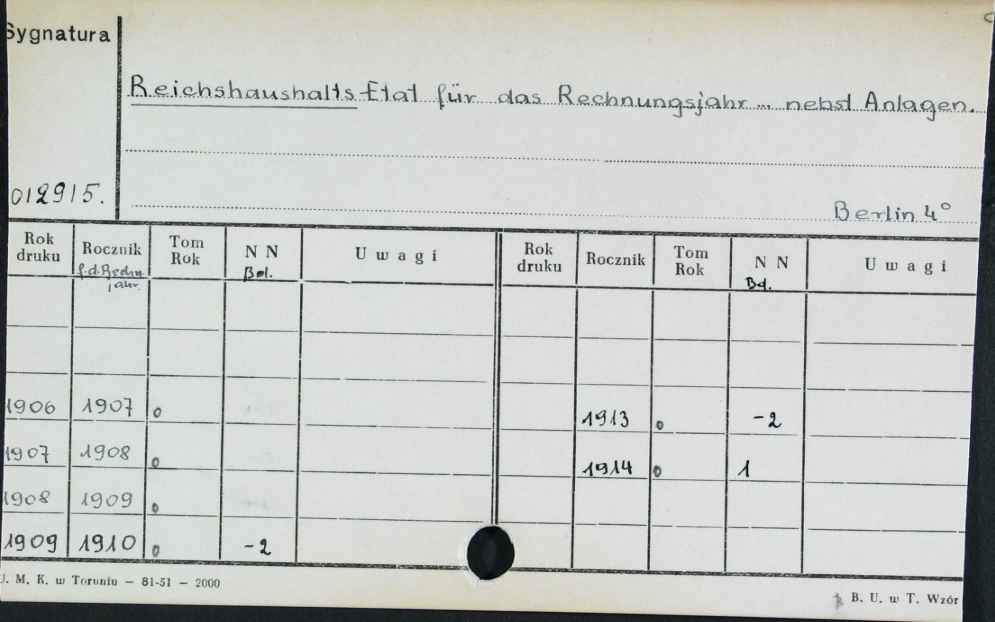 Sygnatura
Reichshaushalts-Etat für das Rechnungsjahr ... nebst Anlagen.
012915.
Berlin 4°
Rok druku Rocznik Tom Rok N N U w a g i Rok druku Rocznik Tom Rok N N U w a g i
f.d. jahr. Bd. Bd.
1906 1907 0 1913 0 -2
1907 1908 0 1914 0 1
1908 1909 0
1909 1910 0 -2
U. M. K. w Toruniu – 81-51 – 2000
B. U. w T. Wzór